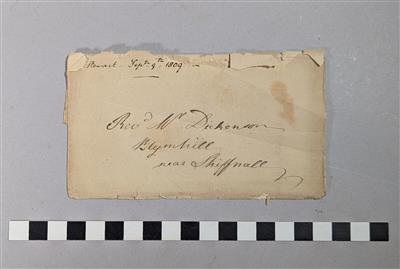 Sept. 9th 1809
Revd. Mr. Dickenson
Blymhill
near Shiffnall